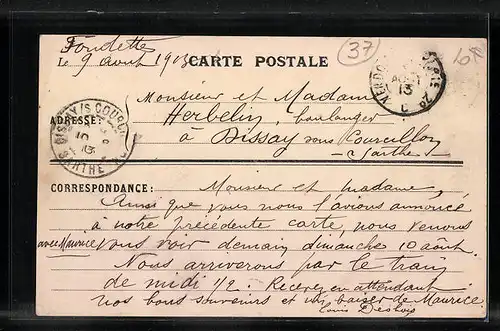 Fondettes
Le 9 août 1913
CARTE POSTALE
37
Monsieur et Madame
ADRESSE: Herbelin, boulanger
à Dissay sous Courcillon
Sarthe
DISSAY/S COURCILLON
SARTHE
13
CORRESPONDANCE: Monsieur et madame,
Ainsi que nous vous l'avions annoncé
à notre précédente carte, nous venons
avec Maurice vous voir demain dimanche 10 août.
Nous arriverons par le train
de midi 1/2. Recevez en attendant
nos bons souvenirs et un baiser de Maurice.
Louis Desbois